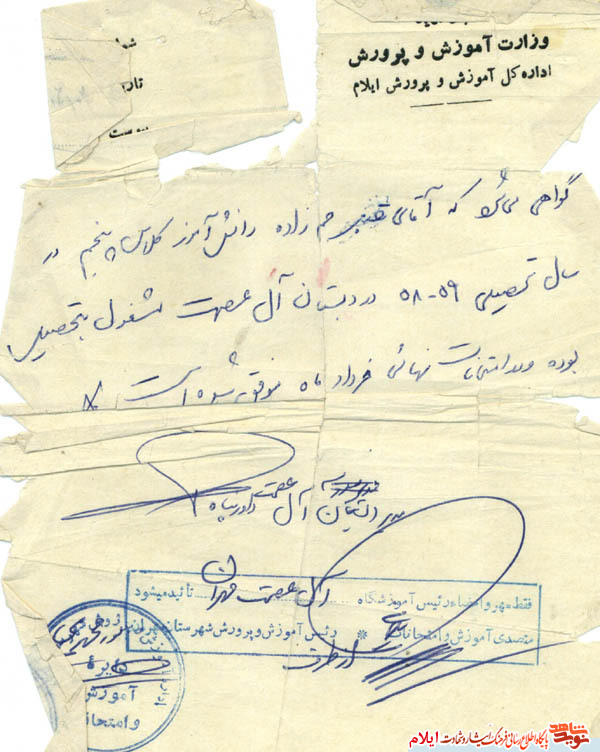 وزارت آموزش و پرورش
اداره کل آموزش و پرورش ایلام
گواهی میشود که آقای قنبر رحم زاده دانش آموز کلاس پنجم در
سال تحصیلی ۵۹-۵۸ در دبستان آل عصمت مشغول بتحصیل
بوده و در امتحانات نهائی خرداد ماه موفق شده است
مدیر دبستان آل عصمت
آل عصمت مهران
فقط مهر و امضاء رئیس آموزشگاه ... تأئید میشود
متصدی آموزش و امتحانات * رئیس آموزش و پرورش شهرستان مهران
از طرف
دایره
آموزش
و امتحانات
نوید شاهد
پایگاه اطلاع رسانی فرهنگ ایثار و شهادت ایلام